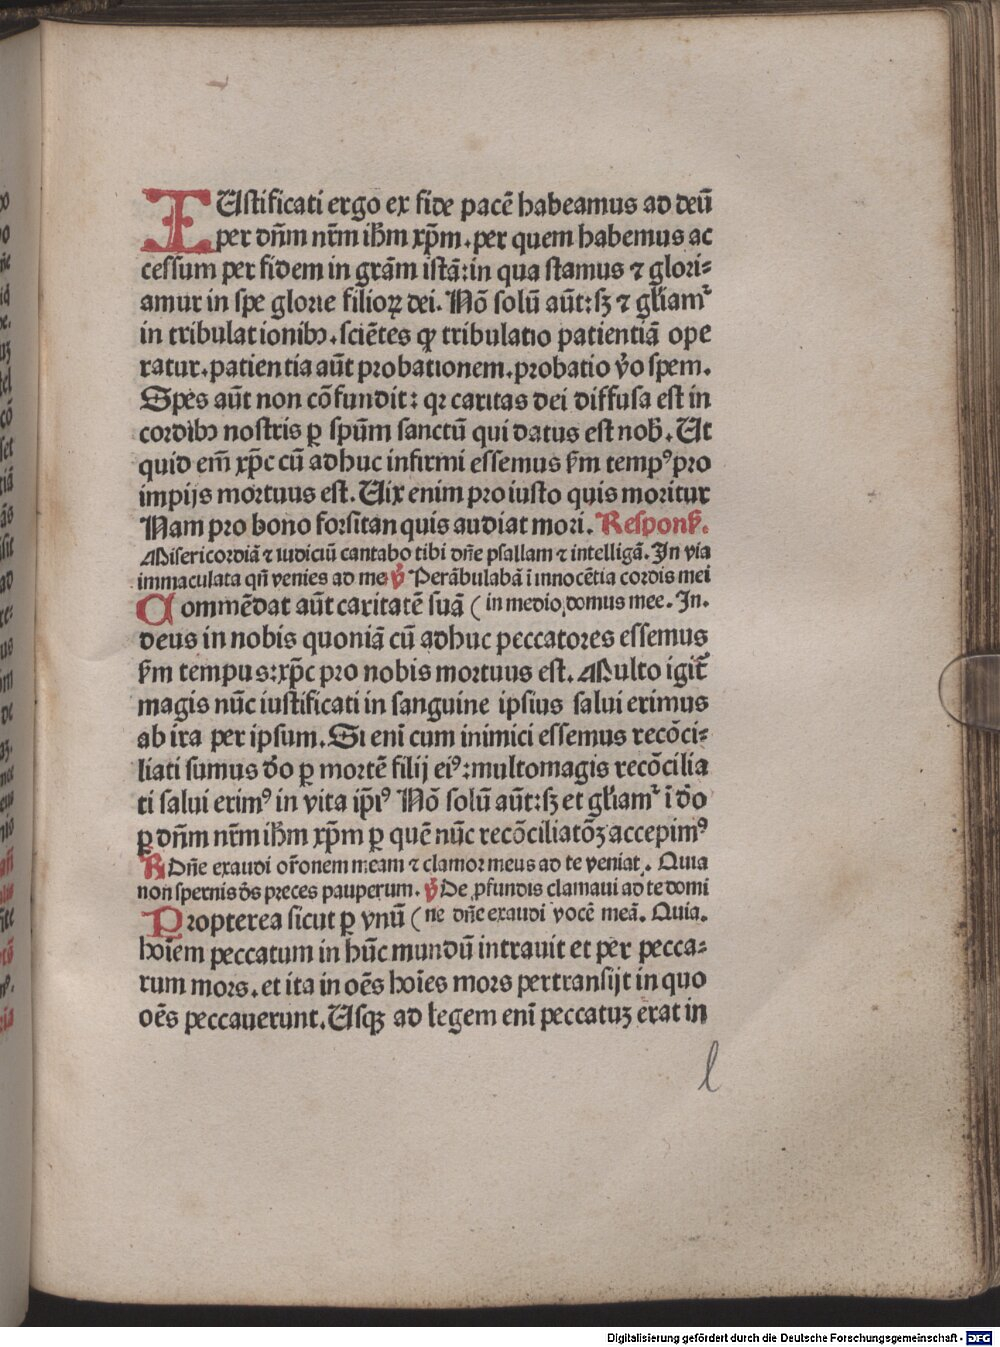 IUstificati ergo ex fide pacē habeamus ad deū
per dn̄m nr̄m ih̄m xp̄m. per quem habemus ac
cessum per fidem in grām istā: in qua stamus ⁊ glori⸗
amur in spe glorie filioꝝ dei. Nō solū aūt: sꝫ ⁊ gl̄iamᷣ
in tribulationibꝰ. sciētes ꝙ tribulatio patientiā ope
ratur. patientia aūt probationem. probatio v̊o spem.
Spes aūt non cōfundit: qꝛ caritas dei diffusa est in
cordibꝰ nostris ꝑ spūm sanctū qui datus est nob̄. Ut
quid em̄ xp̄c cū adhuc infirmi essemus ẜm tempꝰ pro
impijs mortuus est. Uix enim pro iusto quis moritur
Nam pro bono forsitan quis audiat mori. Responẜ.
Misericordiā ⁊ iudiciū cantabo tibi dn̄e psallam ⁊ intelligā. In via
immaculata qn̄ venies ad me ℣ Perābulabā ī innocētia cordis mei
Commēdat aūt caritatē suā ( in medio domus mee. In.
deus in nobis quoniā cū adhuc peccatores essemus
ẜm tempus: xp̄c pro nobis mortuus est. Multo igit᷑
magis nūc iustificati in sanguine ipsius salui erimus
ab ira per ipsum. Si enī cum inimici essemus recōci⸗
liati sumus d̄o ꝑ mortē filij eiꝰ: multomagis recōcilia
ti salui erimꝰ in vita ip̄iꝰ Nō solū aūt: sꝫ et gl̄iamᷣ ī d̄o
ꝑ dn̄m nr̄m ih̄m xp̄m ꝑ quē nūc recōciliatōꝫ accepimꝰ
℟ Dn̄e exaudi or̄onem meam ⁊ clamor meus ad te veniat. Quia
non spernis d̄s preces pauperum. ℣ De ꝓfundis clamaui ad te domi
Propterea sicut ꝑ vnū ( ne dn̄e exaudi vocē meā. Quia.
hoīem peccatum in hūc mundū intrauit et per pecca⸗
tum mors. et ita in oēs hoīes mors pertransijt in quo
oēs peccauerunt. Usqꝫ ad legem enī peccatuꝫ erat in
l
Digitalisierung gefördert durch die Deutsche Forschungsgemeinschaft - DFG